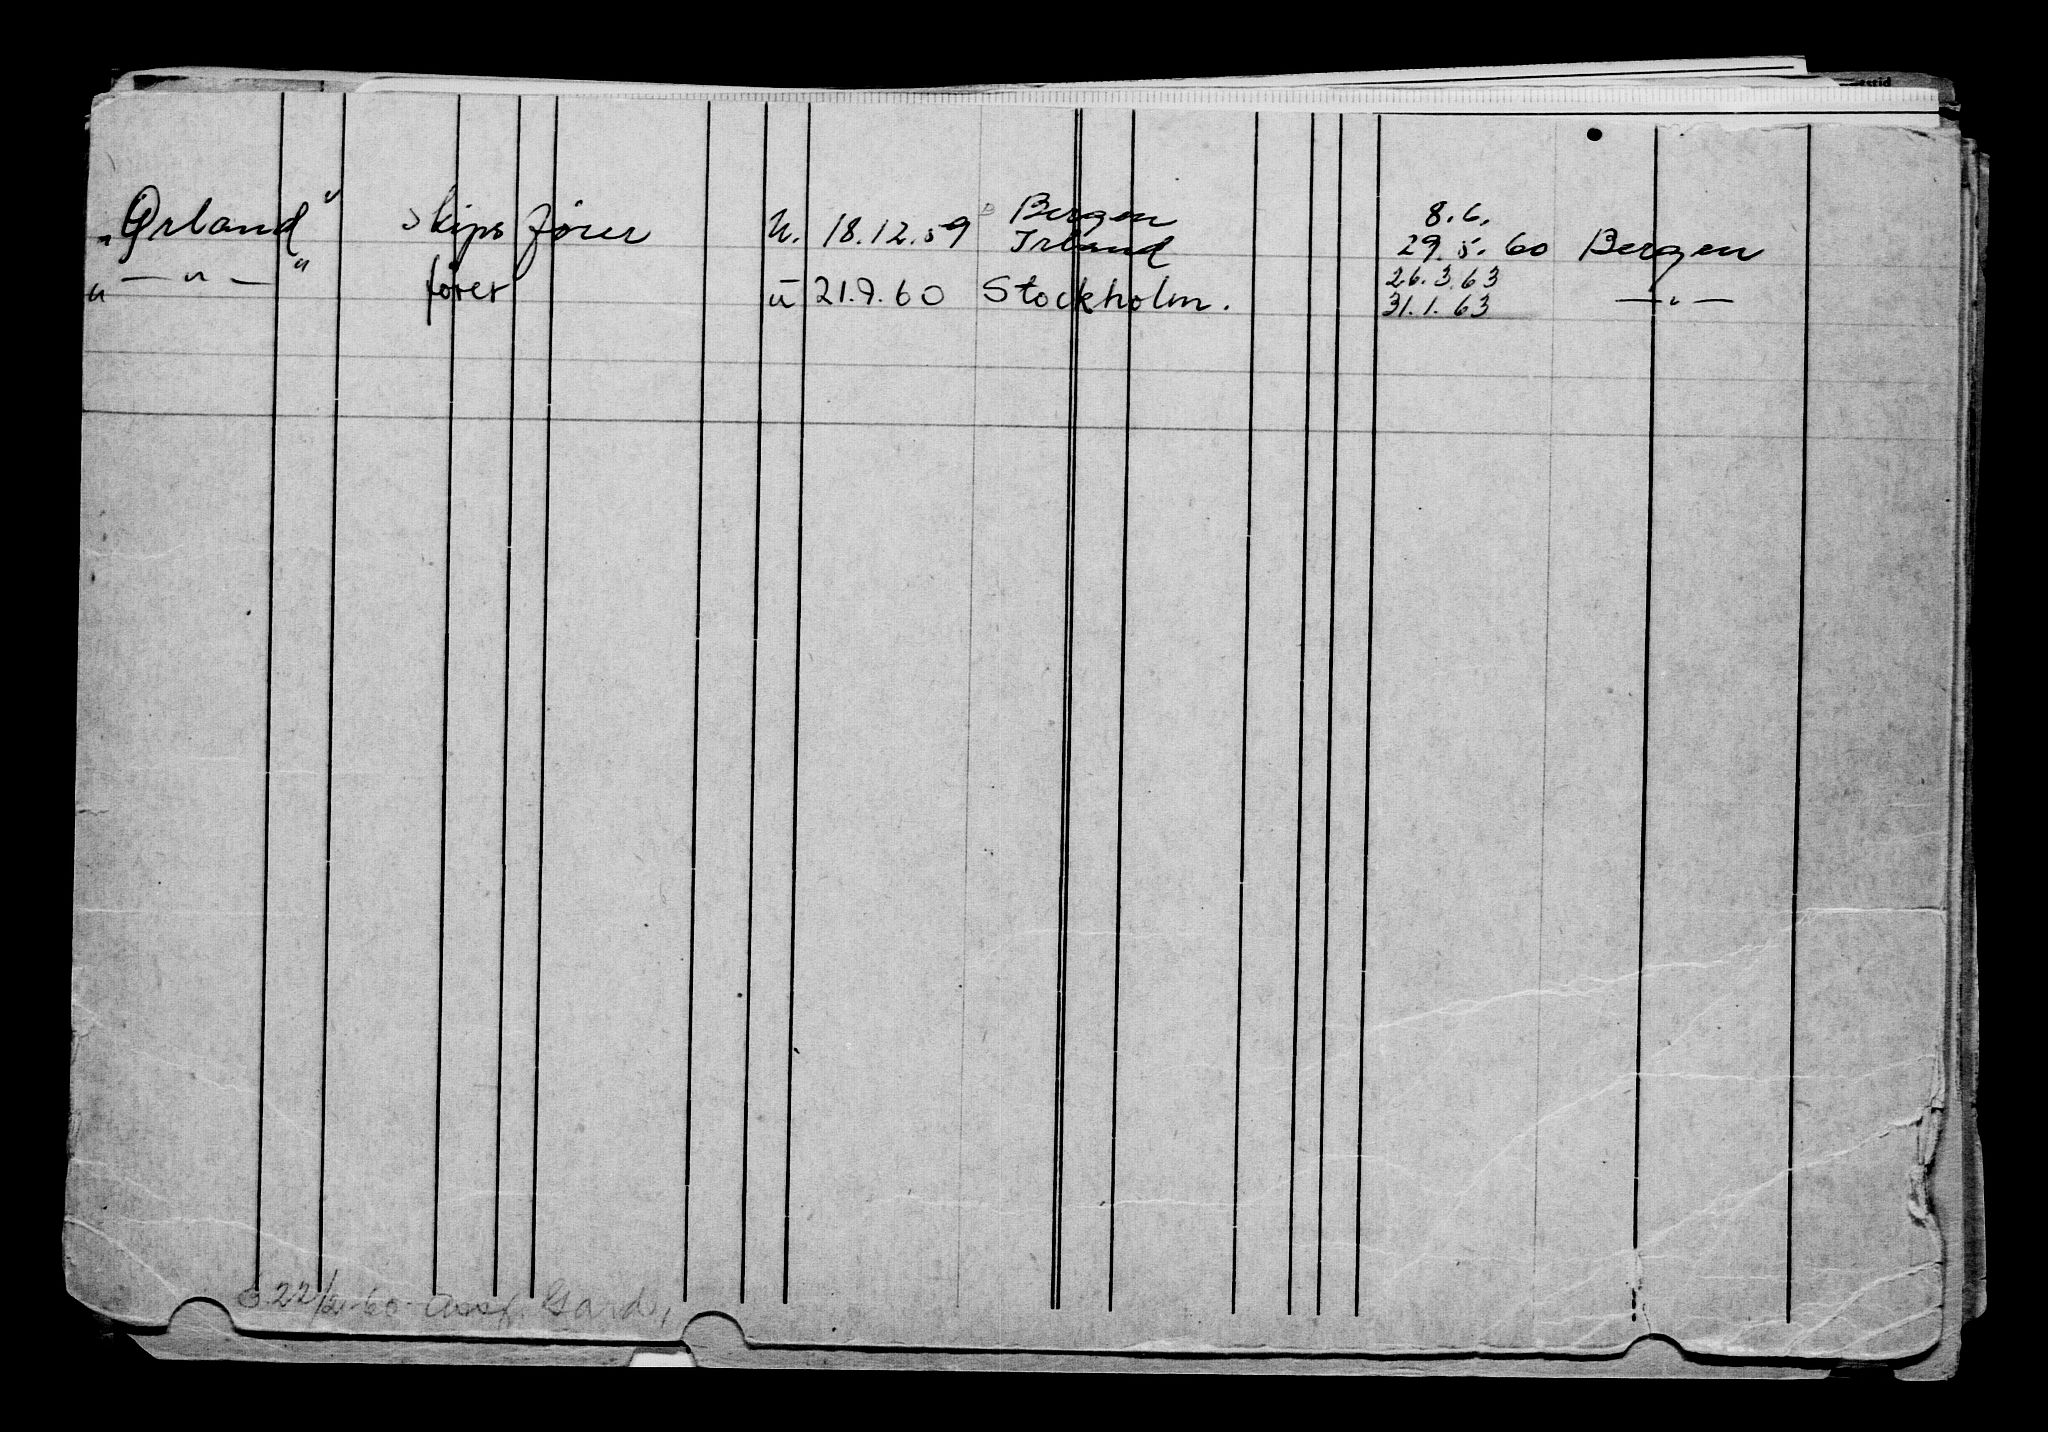 „Ørland" Skipsfører U. 18.12.59 Bergen 8.6.
Irland 29.5.60 Bergen
" — " — " fører u 21.9.60 Stockholm. 26.3.63
31.1.63 — " —
22/2-60 Gard,